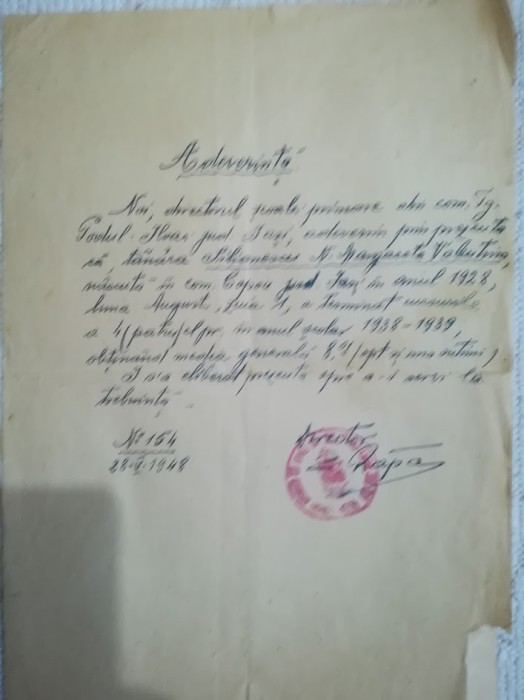 Adeverință
Noi, directorul școalei primare din com. Tg.
jud. Iași, adeverim prin prezenta
că, tânăra N. Margareta Valentina,
născută în com. Copou jud. Iași în anul 1928,
luna August, ziua 21, a terminat cursurile
a 4 (patra) cl. pr. în anul școlar 1938-1939,
obținând media generală 8,1 (opt și una sutimi).
I s'a eliberat prezenta spre a-i servi la
trebuință.
Nº 164
28·V·1948
Director